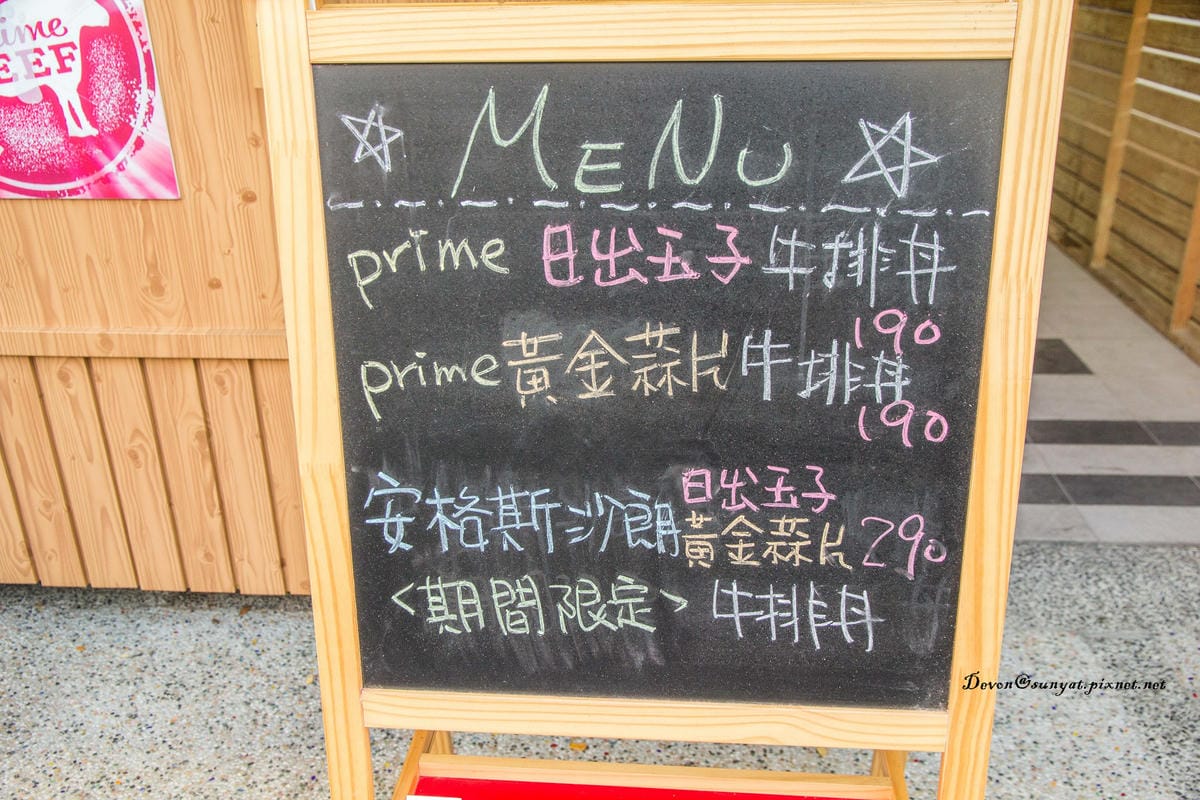 ime
EEF
MENU
prime 日出玉子 牛排丼
190
prime 黃金蒜片 牛排丼
190
日出玉子
安格斯沙朗 黃金蒜片 290
<期間限定> 牛排丼
Devon@sunyat.pixnet.net